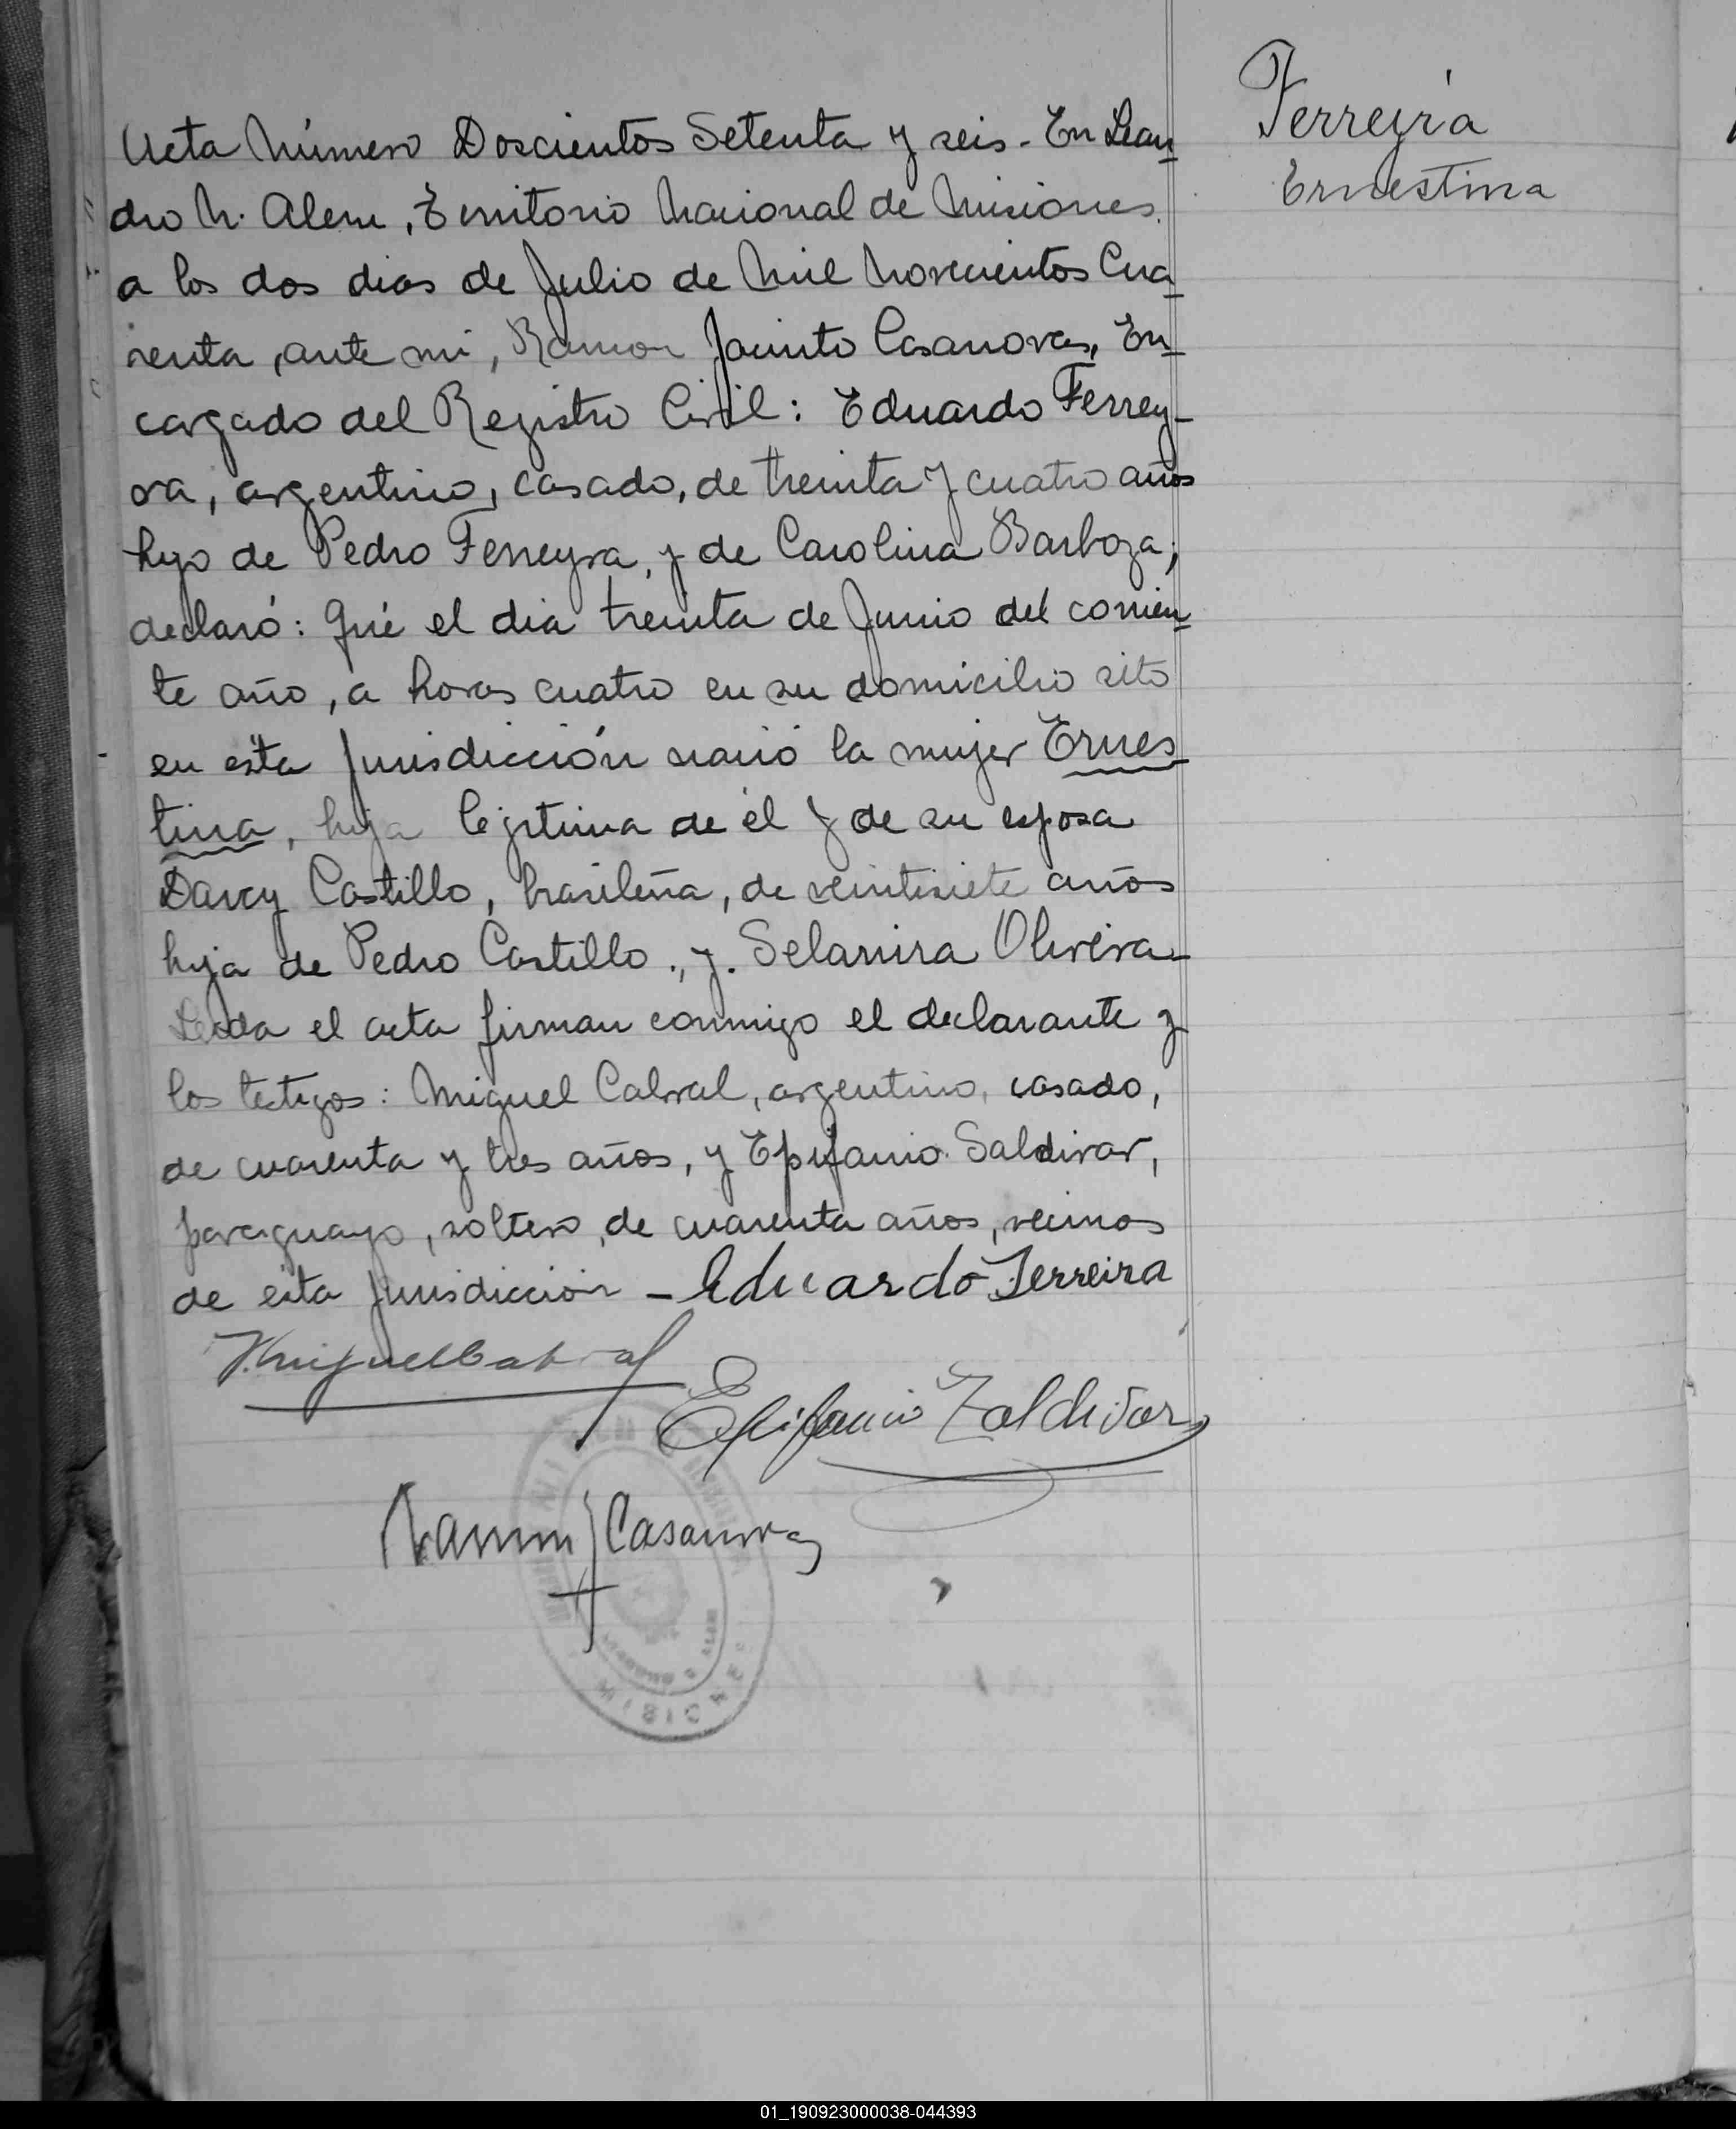 Ferreyra
Ernestina
Acta Número Doscientos Setenta y seis - En Lean
dro N. Alem, Territorio Nacional de Misiones.
a los dos dias de Julio de Mil Novecientos Cua
renta, ante mi, Ramon Jacinto Casanovas, En
cargado del Registro Civil: Eduardo Ferrey-
ra, argentino, casado, de treinta y cuatro años
hijo de Pedro Ferreyra, y de Carolina Barboza;
declaró: Qué el dia treinta de Junio del corrien
te año, a horas cuatro en su domicilio sito
en ésta Jurisdicción nació la mujer Ernes
tina, hija legitima de él y de su esposa
Darcy Castillo, brasileña, de veintisiete años
hija de Pedro Castillo., y. Selanira Oliveira-
Leida el acta firman conmigo el declarante y
los testigos: Miguel Cabral, argentino, casado,
de cuarenta y tres años, y Epifanio Saldivar,
paraguayo, soltero, de cuarenta años, vecinos
de ésta Jurisdicción - Eduardo Ferreira
Miguel Cabral
Epifanio Zaldivar
Ramon J Casanovas
MISIONES
01_190923000038-044393